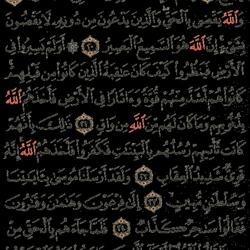 وَٱللَّهُ يَقْضِى بِٱلْحَقِّ وَٱلَّذِينَ يَدْعُونَ مِن دُونِهِۦ لَا يَقْضُونَ
بِشَىْءٍ إِنَّ ٱللَّهَ هُوَ ٱلسَّمِيعُ ٱلْبَصِيرُ ٢٠ أَوَلَمْ يَسِيرُوا۟ فِى
ٱلْأَرْضِ فَيَنظُرُوا۟ كَيْفَ كَانَ عَٰقِبَةُ ٱلَّذِينَ كَانُوا۟ مِن قَبْلِهِمْ
كَانُوا۟ هُمْ أَشَدَّ مِنْهُمْ قُوَّةً وَءَاثَارًا فِى ٱلْأَرْضِ فَأَخَذَهُمُ ٱللَّهُ
بِذُنُوبِهِمْ وَمَا كَانَ لَهُم مِّنَ ٱللَّهِ مِن وَاقٍ ٢١ ذَٰلِكَ بِأَنَّهُمْ
كَانَت تَّأْتِيهِمْ رُسُلُهُم بِٱلْبَيِّنَٰتِ فَكَفَرُوا۟ فَأَخَذَهُمُ ٱللَّهُ إِنَّهُۥ
قَوِىٌّ شَدِيدُ ٱلْعِقَابِ ٢٢ وَلَقَدْ أَرْسَلْنَا مُوسَىٰ بِـَٔايَٰتِنَا
وَسُلْطَٰنٍ مُّبِينٍ ٢٣ إِلَىٰ فِرْعَوْنَ وَهَٰمَٰنَ وَقَٰرُونَ
فَقَالُوا۟ سَٰحِرٌ كَذَّابٌ ٢٤ فَلَمَّا جَآءَهُم بِٱلْحَقِّ مِنْ